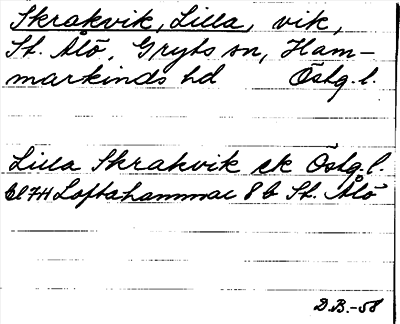 Skrakvik, Lilla, vik,
St. Ålö, Gryts sn, Ham-
markinds hd Östg. l.
Lilla Skrakvik ek Östg. l.
bl 74 Loftahammar 8 b St. Ålö
D.B.-58